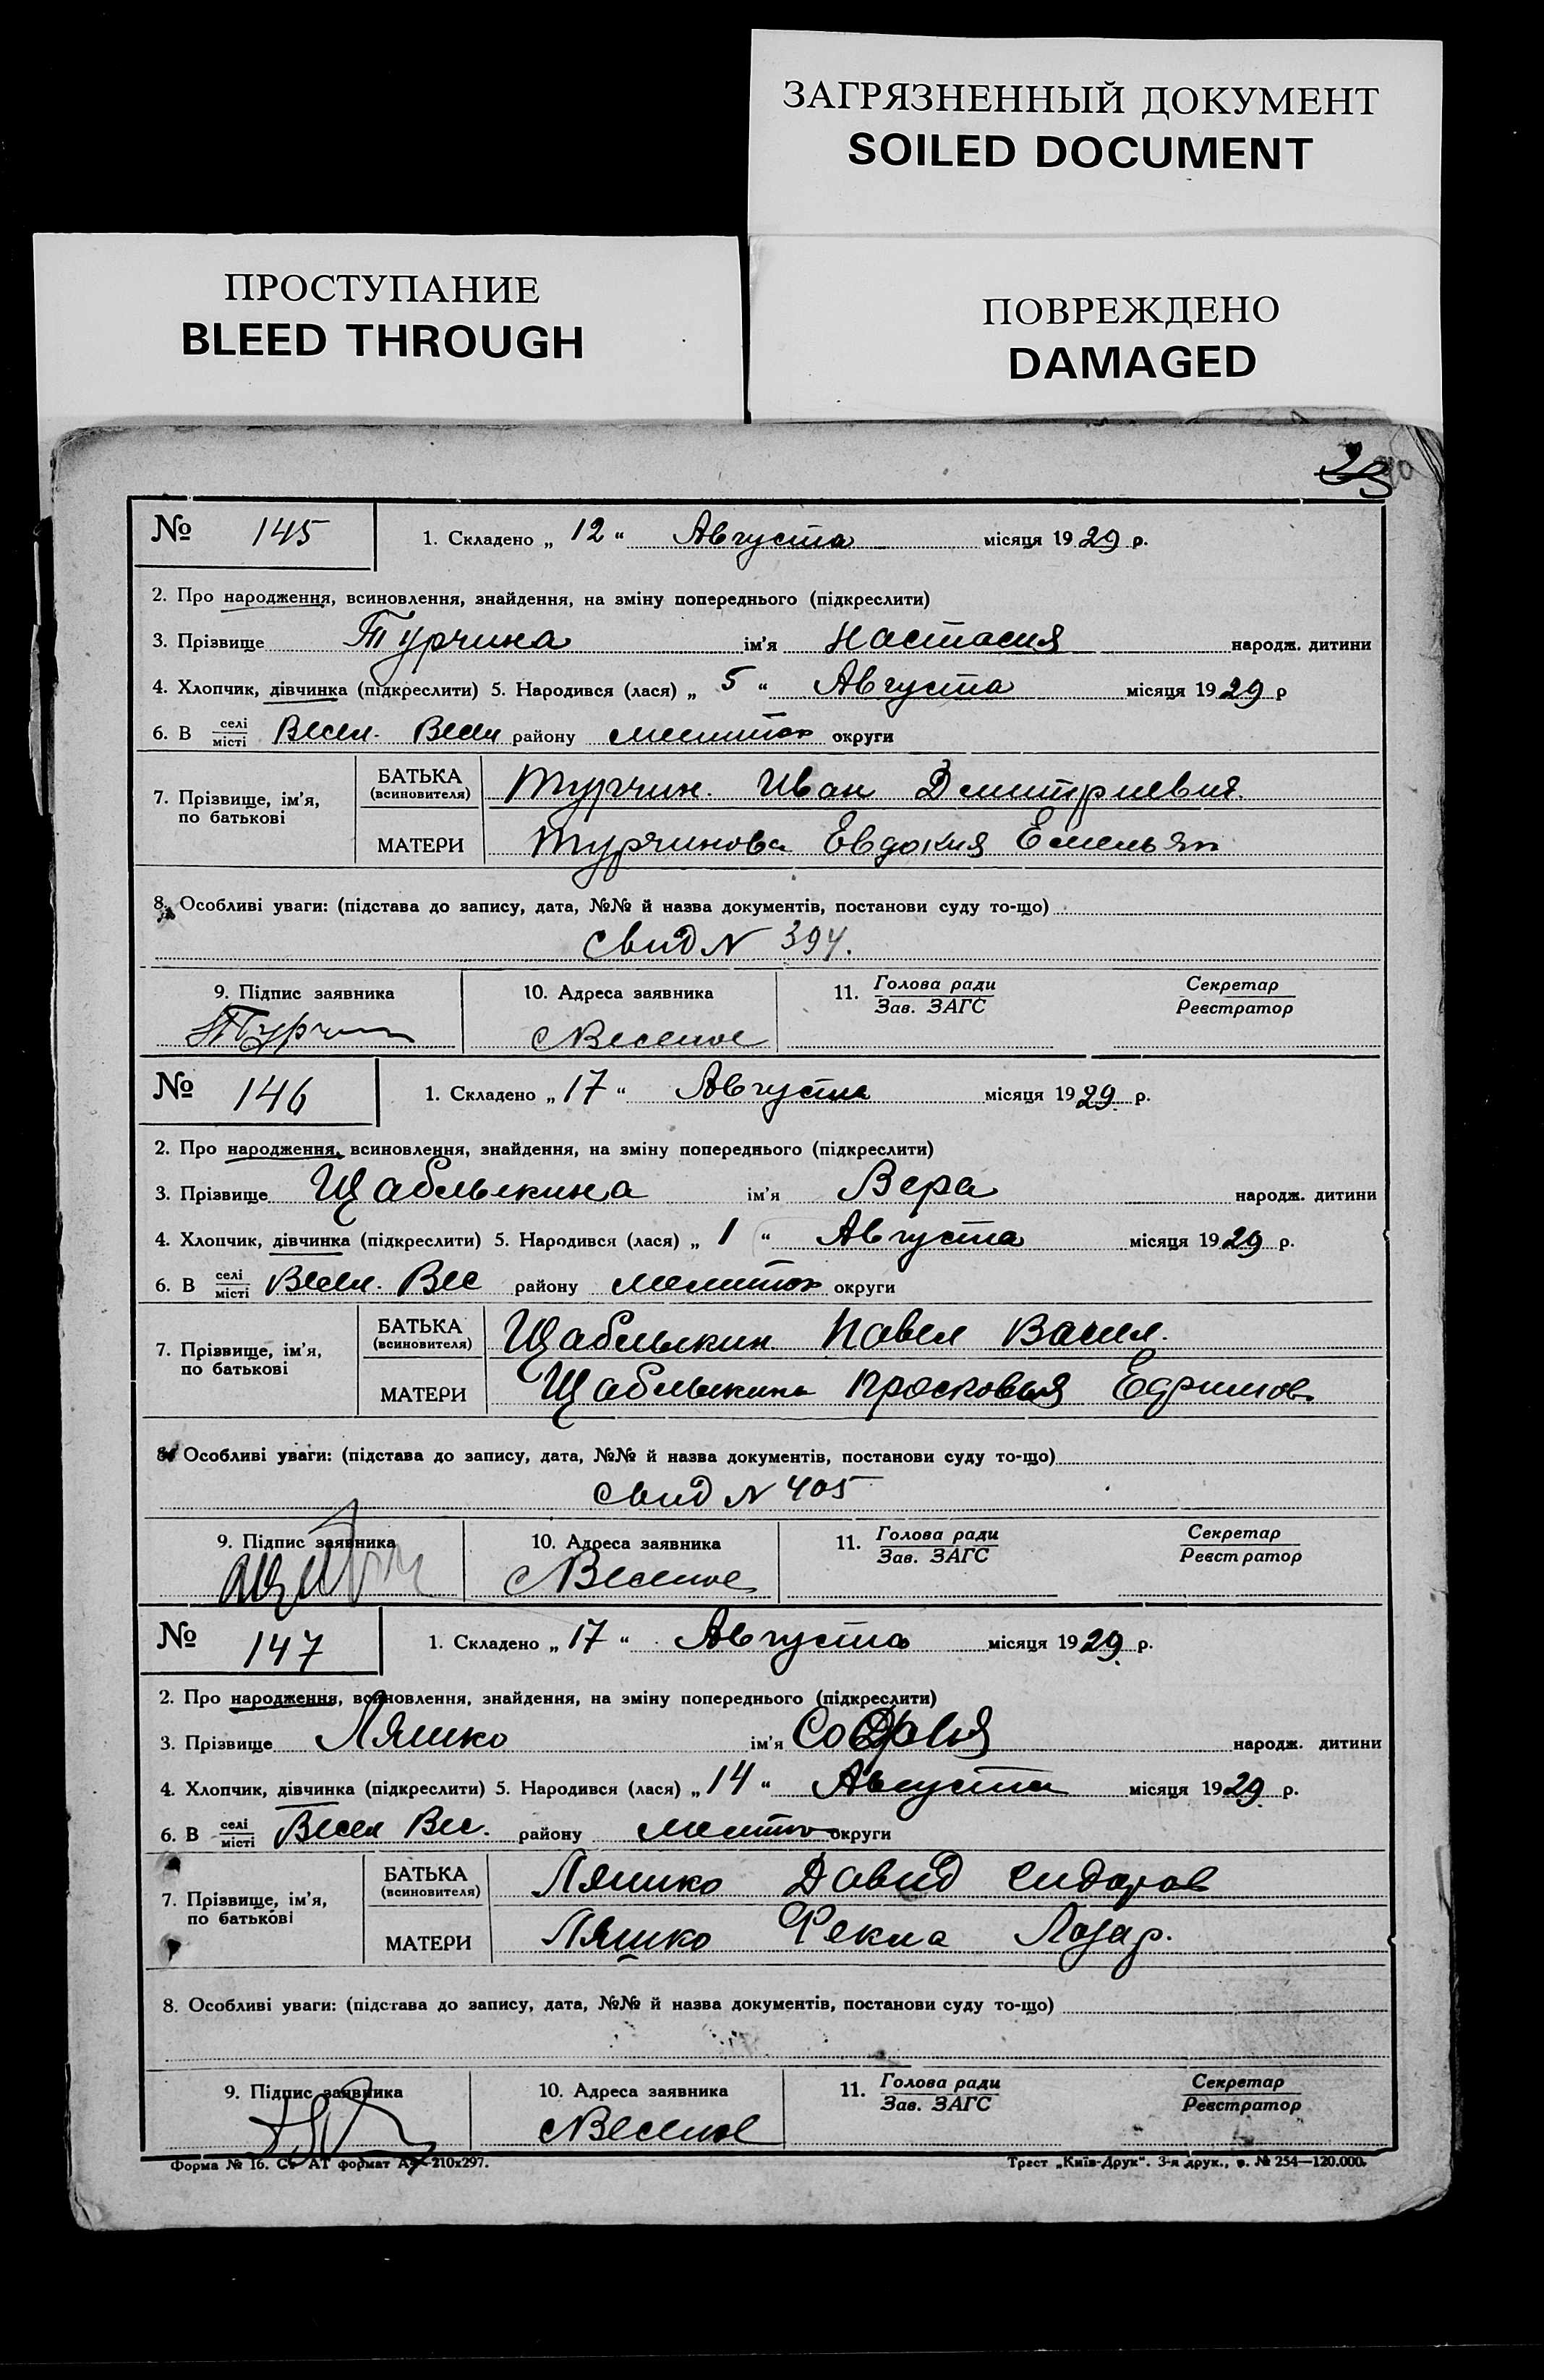 ЗАГРЯЗНЕННЫЙ ДОКУМЕНТ
SOILED DOCUMENT
ПРОСТУПАНИЕ
BLEED THROUGH
ПОВРЕЖДЕНО
DAMAGED
№ 145 1. Складено „ 12 “ Августа місяця 1929 р.
2. Про народження, всиновлення, знайдення, на зміну попереднього (підкреслити)
3. Прізвище Турчина ім'я Настасия народж. дитини
4. Хлопчик, дівчинка (підкреслити) 5. Народився (лася) „ 5 “ Августа місяця 1929 р
6. В селі місті Весел. Весел району Мелитоп округи
7. Прізвище, ім'я, по батькові
БАТЬКА (всиновителя) Турчин. Иван Дмитриевич.
МАТЕРИ Турчинова Евдокия Емельян
8. Особливі уваги: (підстава до запису, дата, №№ й назва документів, постанови суду то-що)
Свид N 394.
9. Підпис заявника 10. Адреса заявника 11. Голова ради Зав. ЗАГС Секретар Реєстратор
Турчин с Веселое
№ 146 1. Складено „ 17 “ Августа місяця 1929. р.
2. Про народження, всиновлення, знайдення, на зміну попереднього (підкреслити)
3. Прізвище Щабелькина ім'я Вера народж. дитини
4. Хлопчик, дівчинка (підкреслити) 5. Народився (лася) „ 1 “ Августа місяця 1929 р.
6. В селі місті Весел. Вес району Мелитоп округи
7. Прізвище, ім'я, по батькові
БАТЬКА (всиновителя) Щабелькин Павел Васил.
МАТЕРИ Щабелькина Прасковья Ефримов.
8. Особливі уваги: (підстава до запису, дата, №№ й назва документів, постанови суду то-що)
Свид N 405
9. Підпис заявника 10. Адреса заявника 11. Голова ради Зав. ЗАГС Секретар Реєстратор
с Веселое
№ 147 1. Складено „ 17 “ Августа місяця 1929. р.
2. Про народження, всиновлення, знайдення, на зміну попереднього (підкреслити)
3. Прізвище Ляшко ім'я Софья народж. дитини
4. Хлопчик, дівчинка (підкреслити) 5. Народився (лася) „ 14 “ Августа місяця 1929. р.
6. В селі місті Весел Вес. району Мелито округи
7. Прізвище, ім'я, по батькові
БАТЬКА (всиновителя) Ляшко Давид Сидоров
МАТЕРИ Ляшко Фекла Лазар.
8. Особливі уваги: (підстава до запису, дата, №№ й назва документів, постанови суду то-що)
9. Підпис заявника 10. Адреса заявника 11. Голова ради Зав. ЗАГС Секретар Реєстратор
с Веселое
Форма № 16. Ст АТ формат А4—210х297. Трест „Київ-Друк“. 3-я друк., з. № 254—120.000.